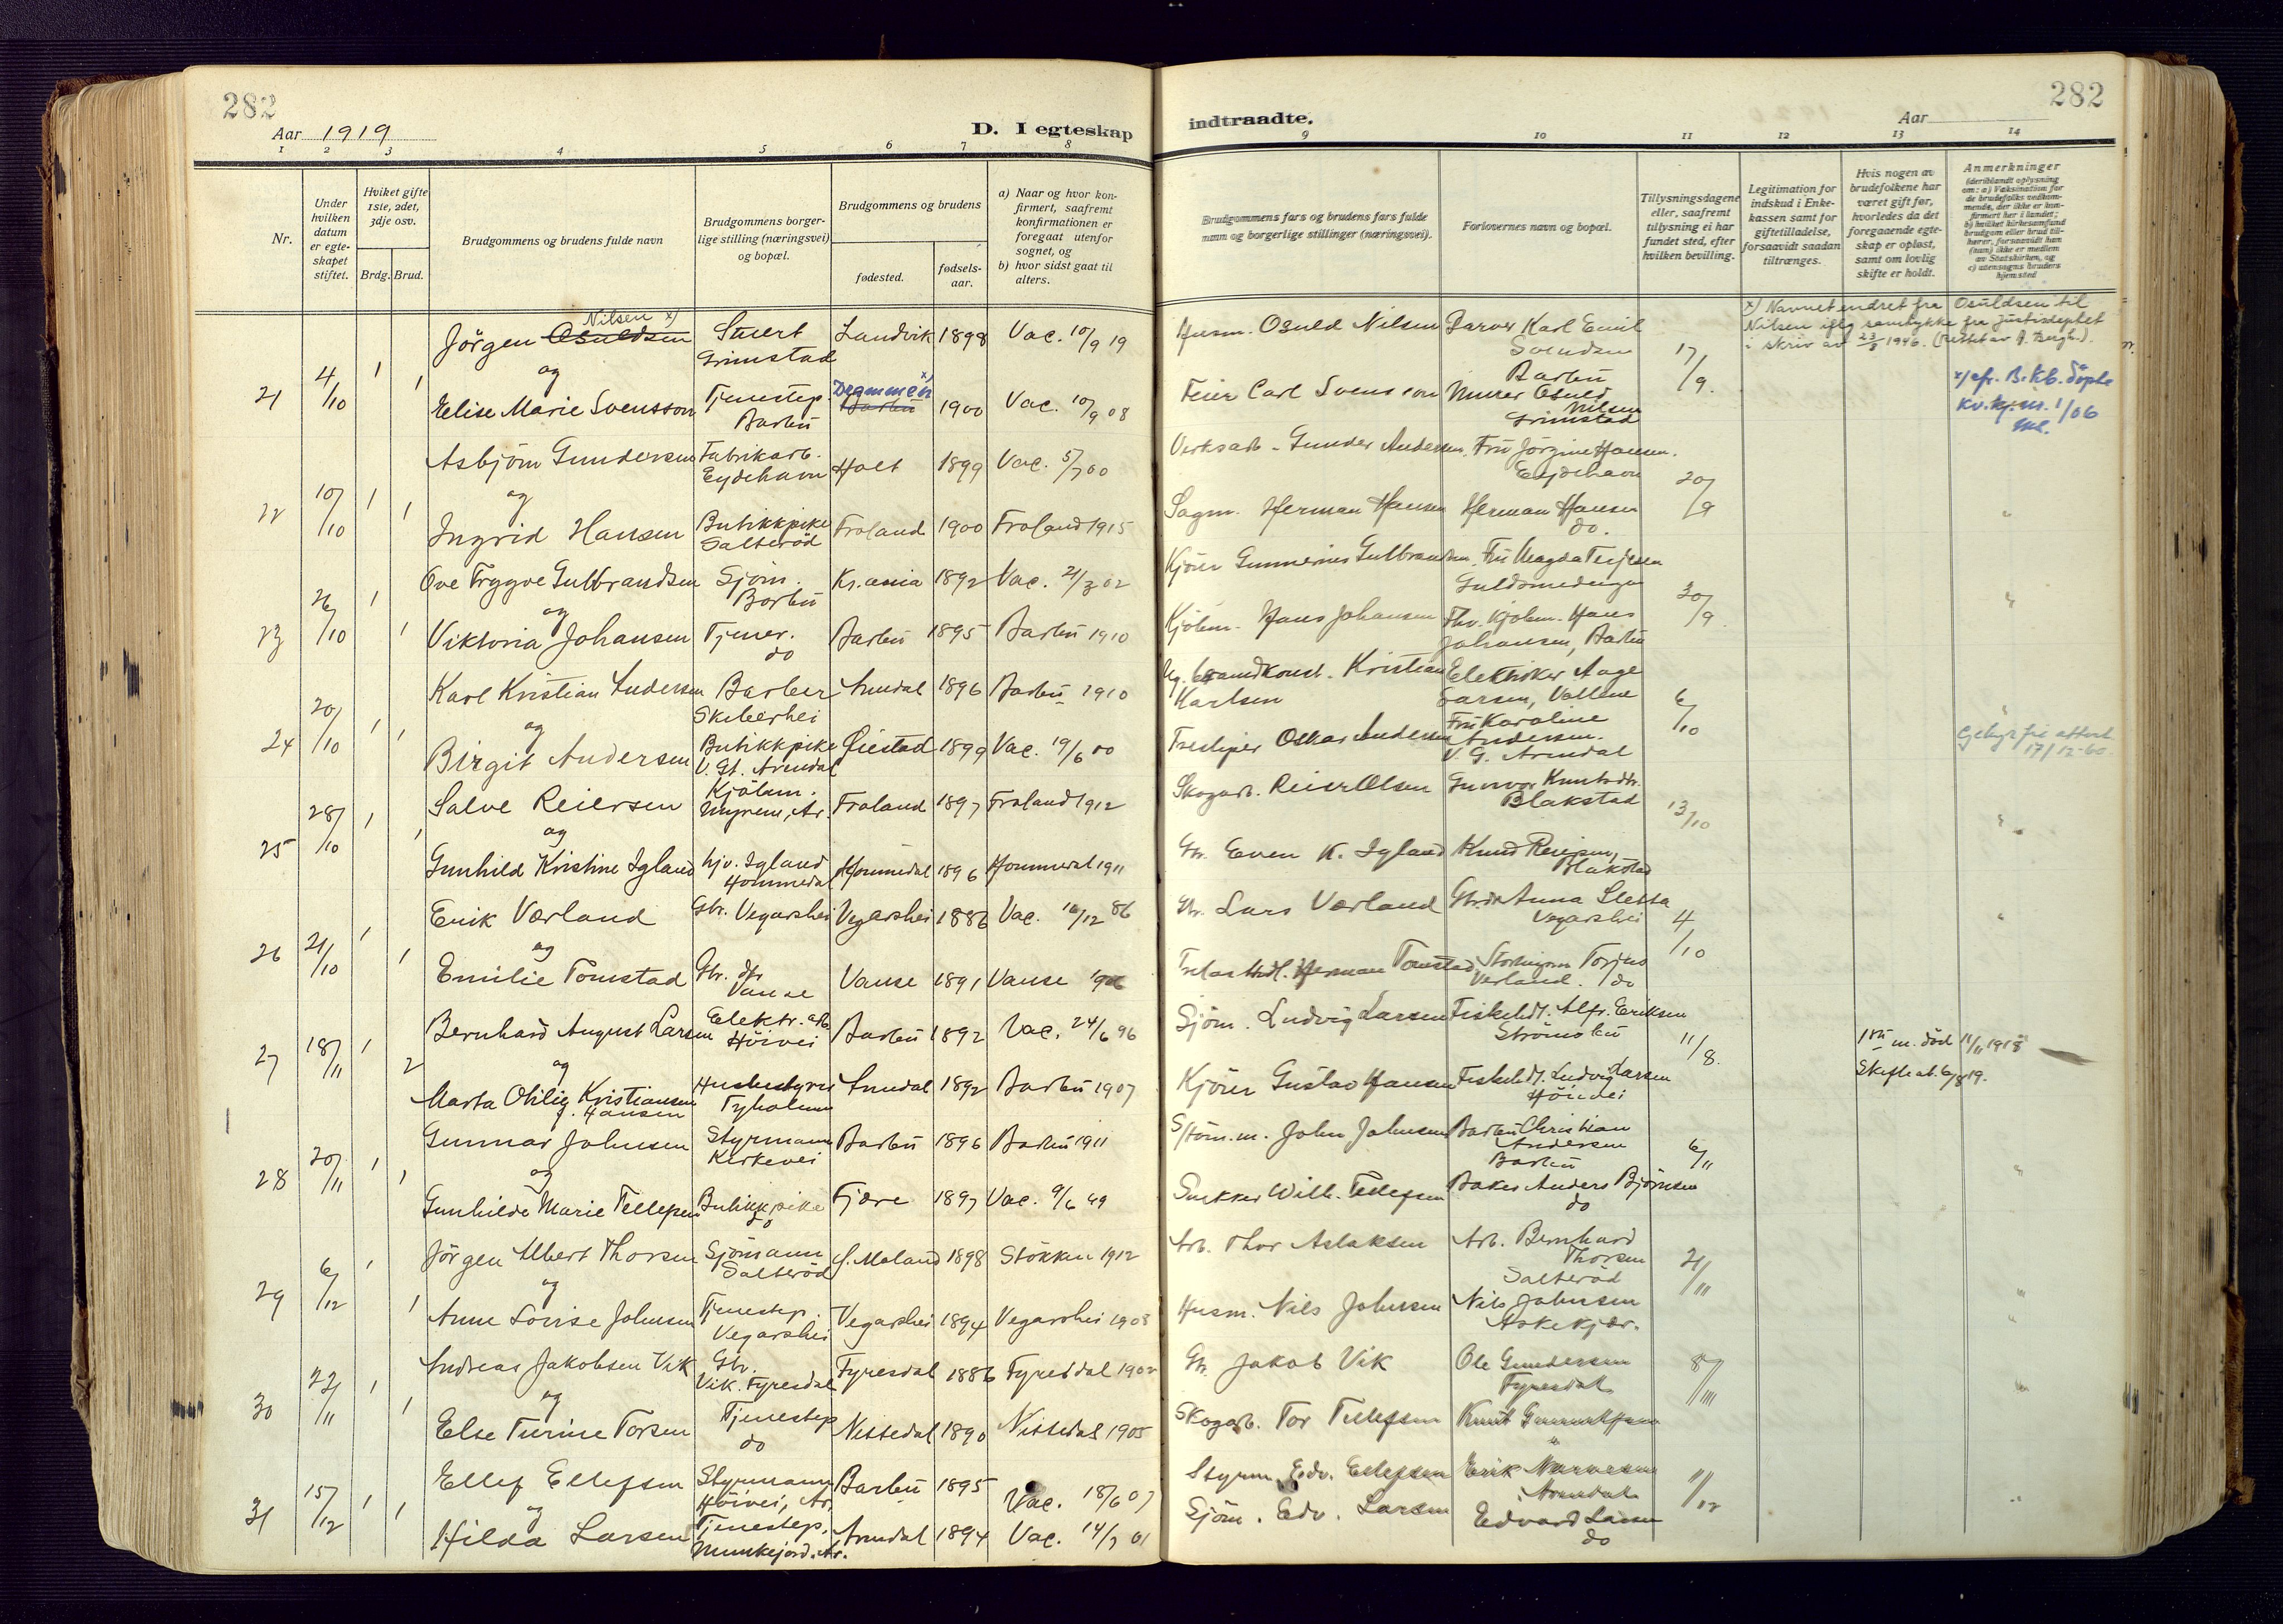 282
Aar 1919
D. I egteskap
1 2 3 4 5 6 7 8
Nr.
Under hvilken datum er egteskapet stiftet.
Hviket gifte 1ste, 2det, 3dje osv.
Brdg. Brud.
Brudgommens og brudens fulde navn
Brudgommens borgerlige stilling (næringsvei) og bopæl.
Brudgommens og brudens
fødested.
fødselsaar.
a) Naar og hvor konfirmert, saafremt konfirmationen er foregaat utenfor sognet, og
b) hvor sidst gaat til alters.
21 4/10 1 1
Nilsen x)
Jörgen Osuldsen Stuert Grimstad Landvik 1898 Vac. 10/9 19
og
Elise Marie Svensson Tjenestep. Barbu Drammen x) Barbu 1900 Vac. 10/9 08
22 10/10 1 1
Asbjörn Gundersen Fabrikarb. Eydehavn Holt 1899 Vac. 5/7 00
og
Ingrid Hansen Butikkpike Salteröd Froland 1900 Froland 1915
23 26/10 1 1
Ove Trygve Gulbrandsen Sjöm. Barbu Kr.ania 1892 Vac. 21/3 02
og
Viktoria Johansen Tjener. do Barbu 1895 Barbu 1910
24 20/10 1 1
Karl Kristian Andersen Barber Skibeshei Arendal 1896 Barbu 1910
og
Birgit Andersen Butikkpike V. Gt. Arendal Øiestad 1899 Vac. 19/6 00
25 28/10 1 1
Salve Reiersen Kjölem. Myrene, Ar. Froland 1897 Froland 1912
og
Gunhild Kristine Igland hjv. Igland Hommedal Hommedal 1896 Hommedal 1911
26 21/10 1 1
Erik Værland Gbr. Vegarshei Vegarshei 1886 Vac. 16/12 86
og
Emilie Tomstad Gbr. dtr Vanse Vanse 1891 Vanse 1906
27 18/11 1 2
Bernhard August Larsen Elektr. arb. Höivei Barbu 1892 Vac. 24/6 96
og
Marta Otilie Kristiansen f. Hansen Husbestyrer. Tyholmen Arendal 1892 Barbu 1907
28 20/11 1 1
Gunnar Johnsen Styrmann Kirkevei Barbu 1896 Barbu 1911
og
Gunhilde Marie Tellefsen Butikkpike do Fjære 1897 Vac. 9/6 99
29 6/12 1 1
Jörgen Albert Thorsen Sjömann Salteröd Ö. Moland 1898 Stokken 1912
og
Anne Lovise Johnsen Tjenestep. Vegarshei Vegarshei 1894 Vegarshei 1908
30 22/11 1 1
Andreas Jakobsen Vik Gbr. Vik. Fyresdal Fyresdal 1886 Fyresdal 1902
og
Else Turine Torsen Tjenestep do Nissedal 1890 Nissedal 1905
31 15/12 1 1
Ellef Ellefsen Styrmann Höivei, Ar. Barbu 1895 Vac. 18/6 07
og
Hilda Larsen Tjenestep. Munkejord. Ar. Arendal 1894 Vac. 14/7 01
282
indtraadte.
Aar
9 10 11 12 13 14
Brudgommens fars og brudens fars fulde navn og borgerlige stillinger (næringsvei).
Forlovernes navn og bopæl.
Tillysningsdagene eller, saafremt tillysning ei har fundet sted, efter hvilken bevilling.
Legitimation for indskud i Enkekassen samt for giftetilladelse, forsaavidt saadan tiltrænges.
Hvis nogen av brudefolkene har været gift før, hvorledes da det foregaaende egteskap er opløst, samt om lovlig skifte er holdt.
Anmerkninger (deriblandt oplysning om: a) Vaksination for de brudefolks vedkommende, der ikke er konfirmert her i landet; b) hvilket kirkesamfund brudgom eller brud tilhører, forsaavidt han (hun) ikke er medlem av Statskirken, og c) utensogns bruders hjemsted
x) Navnet endret fra Osuldsen til
Nilsen iflg samtykke fra Justisdeptet
i skriv av 23/8 1946. (rettet av J. Bergh.).
Husm. Osuld Nilsen Barver Karl Emil Svendsen Barbu 17/9.
Feier Carl Svensson Murer Osuld Nilsen Grimstad
x) cfr. B. Kb. döpte
kv. kj. nr. 1/06
Verksarb. Gunder Andersen. Fru Jörgine Hansen. Eydehavn 20/9
Sagm. Herman Hansen Herman Hansen do.
Kjörer Gunnerius Gulbrandsen. Fru Magda Terjesen Guldsmedengen 30/9.
Kjölem. Hans Johansen Thv. Kjölem. Hans Johansen, Barbu
Ug. brandkonst. Kristian Karlsen Elektriker Aage Larsen, Vollene 6/10
Tresliper Oskar Andersen Fru Karoline Andersen. V. G. Arendal
Gebyrfri attest 17/12-60.
Skogarb. Reier Olsen Gunvor Knutsdtr. Blakstad 13/10
Gbr. Even K. Igland Knud Reiersen, Blakstad
Gbr. Lars Værland Gbrdtr Anna Sletta Vegarshei 4/10
Trelasthdl. Herman Tomstad Storthingsm Torjus Værland. do
Sjöm. Ludvig Larsen Fiskehdl. Alfr. Eriksen Strömsbu 11/8.
1ste m. död 11/11 1918
Skifteat. 6/8 19.
Kjörer Gustav Hansen Fiskehdl. Ludvig Larsen Höivei
Stöm. m. John Johnsen Barbu Christian Andersen Barbu 6/11
Snekker Wilh. Tellefsen Baker Anders Björnsen do
Arb. Thor Aslaksen Arb. Bernhard Thorsen Salteröd 21/11
Husm. Nils Johnsen Nils Johnsen Askekjær.
Gbr. Jakob Vik Ole Gundersen Fyresdal 8/11
Skogarb. Tor Tellefsen Knut
Styrm. Edv. Ellefsen Erik Arendal 11/12
Sjöm. Edv. Larsen Edvard Larsen do